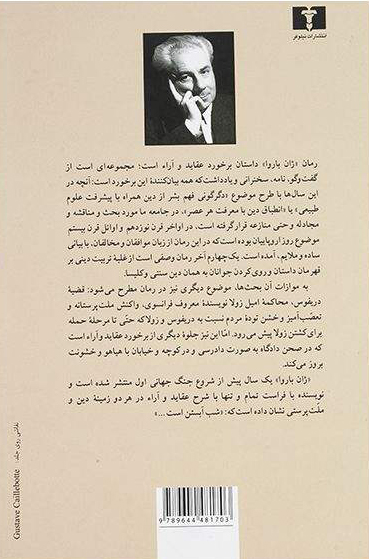 انتشارات نیلوفر
رمان «ژان باروا» داستان برخورد عقاید و آراء است؛ مجموعه‌ای است از
گفت‌وگو، نامه، سخنرانی و یادداشت که همه بیان‌کنندهٔ این برخورد است: آنچه در
این سال‌ها با طرح موضوع «دگرگونی فهم بشر از دین همراه با پیشرفت علوم
طبیعی» یا «انطباق دین با معرفت هر عصر»، در جامعه ما مورد بحث و مناقشه و
مجادله و حتی منازعه قرار گرفته است، در اواخر قرن نوزدهم و اوائل قرن بیستم
موضوع روز اروپاییان بوده است که در این رمان از زبان موافقان و مخالفان، با بیانی
ساده و ملایم، آمده است. یک‌چهارم آخر رمان وصفی است از غلبهٔ تربیت دینی بر
قهرمان داستان و روی کردن جوانان به همان دین سنتی و کلیسا.
به موازات آن بحث‌ها، موضوع دیگری نیز در رمان مطرح می‌شود: قضیهٔ
دریفوس، محاکمهٔ امیل زولا نویسندهٔ معروف فرانسوی، واکنش ملت‌پرستانه و
تعصب‌آمیز و خشن تودهٔ مردم نسبت به دریفوس و زولا که حتّی تا مرحلهٔ حمله
برای کشتن زولا پیش می‌رود. امّا این نیز جلوهٔ دیگری از برخورد عقاید و آراء است
که در صحن دادگاه به صورت دادرسی و در کوچه و خیابان با هیاهو و خشونت
بروز می‌کند.
«ژان باروا» یک سال پیش از شروع جنگ جهانی اول منتشر شده است و
نویسنده با فراست تمام و تنها با شرح عقاید و آراء در هر دو زمینهٔ دین و
ملّت‌پرستی نشان داده است که: «شب آبستن است ...»
نقاشی روی جلد:
Gustave Caillebotte
9 789644 481703